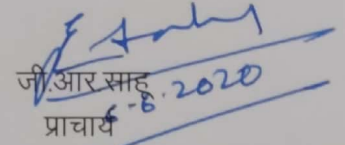 जी.आर.साहू
6-8.2020
प्राचार्य